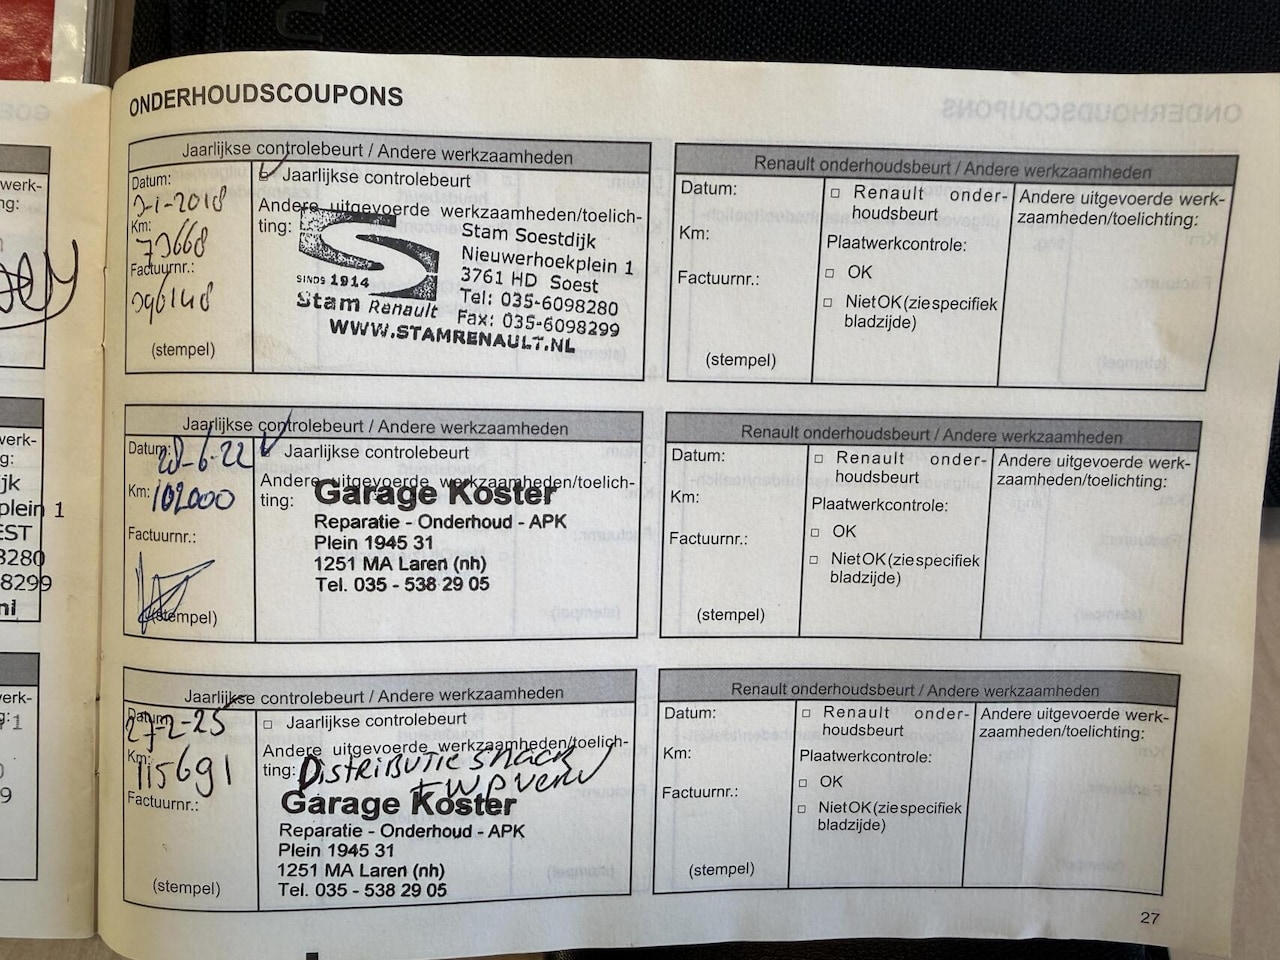 ONDERHOUDSCOUPONS
Jaarlijkse controlebeurt / Andere werkzaamheden
Datum:
Jaarlijkse controlebeurt
2-1-2018
Andere uitgevoerde werkzaamheden/toelich-
ting:
Km:
73668
Factuurnr.:
(stempel)
SINDS 1914
Stam Renault
Stam Soestdijk
Nieuwerhoekplein 1
3761 HD Soest
Tel: 035-6098280
Fax: 035-6098299
WWW.STAMRENAULT.NL
Renault onderhoudsbeurt / Andere werkzaamheden
Datum:
Km:
Factuurnr.:
(stempel)
Renault onder-
houdsbeurt
Plaatwerkcontrole:
OK
Niet OK (zie specifiek
bladzijde)
Andere uitgevoerde werk-
zaamheden/toelichting:
Jaarlijkse controlebeurt / Andere werkzaamheden
Datum: 28-6-22
Jaarlijkse controlebeurt
Km: 102000
Andere uitgevoerde werkzaamheden/toelich-
ting:
Factuurnr.:
(stempel)
Garage Koster
Reparatie - Onderhoud - APK
Plein 1945 31
1251 MA Laren (nh)
Tel. 035 - 538 29 05
Renault onderhoudsbeurt / Andere werkzaamheden
Datum:
Km:
Factuurnr.:
(stempel)
Renault onder-
houdsbeurt
Plaatwerkcontrole:
OK
Niet OK (zie specifiek
bladzijde)
Andere uitgevoerde werk-
zaamheden/toelichting:
Jaarlijkse controlebeurt / Andere werkzaamheden
Datum:
27-2-25
Jaarlijkse controlebeurt
Km:
115691
Andere uitgevoerde werkzaamheden/toelich-
ting: Distributie snaar
+ WP Verv
Factuurnr.:
(stempel)
Garage Koster
Reparatie - Onderhoud - APK
Plein 1945 31
1251 MA Laren (nh)
Tel. 035 - 538 29 05
Renault onderhoudsbeurt / Andere werkzaamheden
Datum:
Km:
Factuurnr.:
(stempel)
Renault onder-
houdsbeurt
Plaatwerkcontrole:
OK
Niet OK (zie specifiek
bladzijde)
Andere uitgevoerde werk-
zaamheden/toelichting:
27